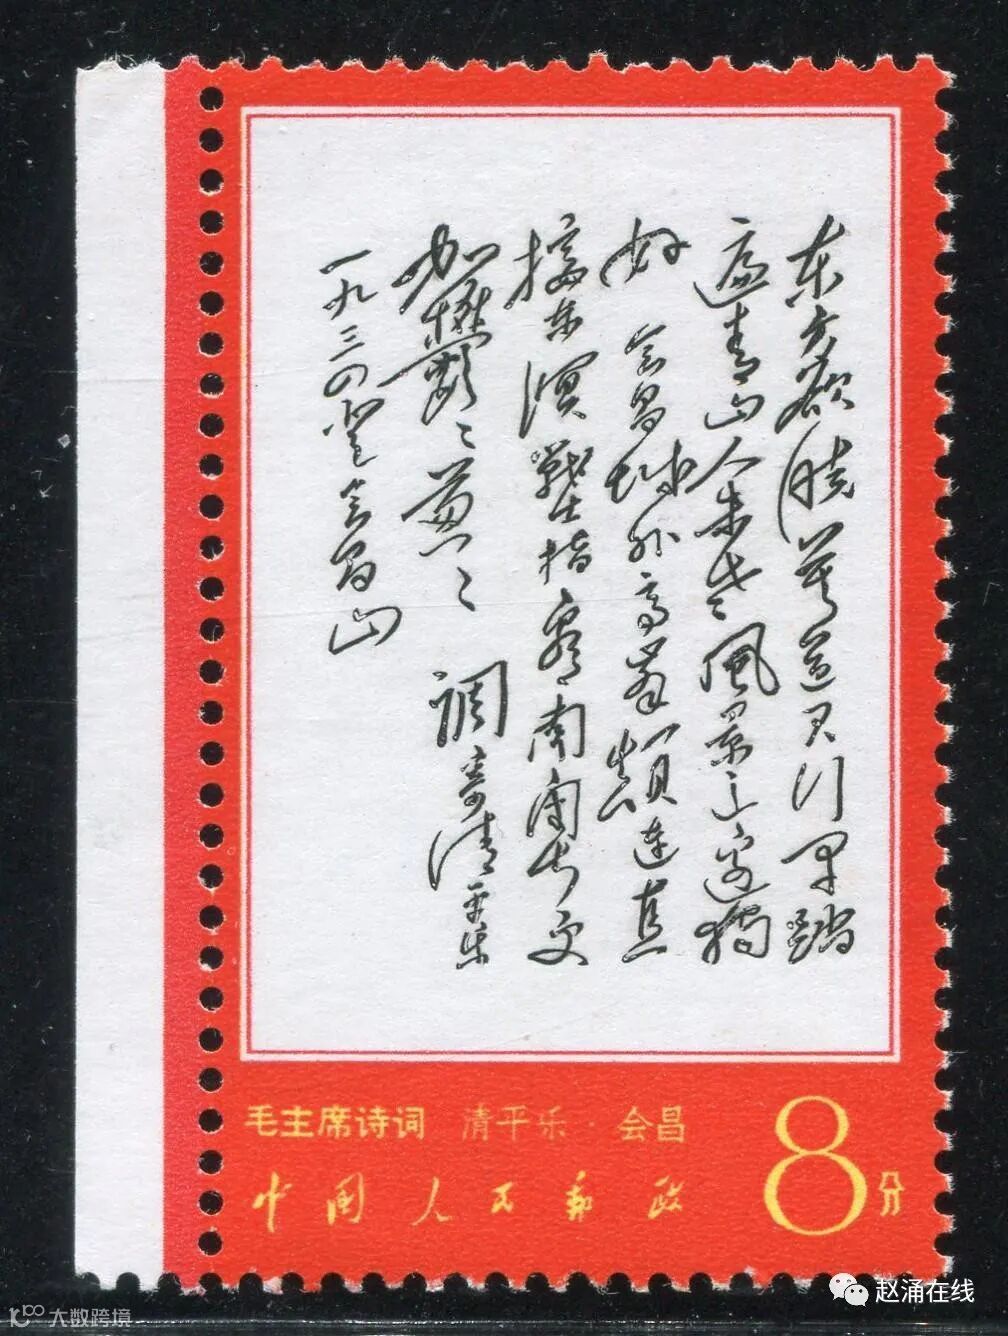 东方欲晓莫道君行早踏
遍青山人未老風景这边独
好 会昌城外高峯颠连直
接东溟戰士指看南粤更
加鬱々葱々 调寄清平乐
一九三四登会昌山
毛主席诗词 清平乐·会昌
中国人民邮政
8分
赵涌在线
大数跨境